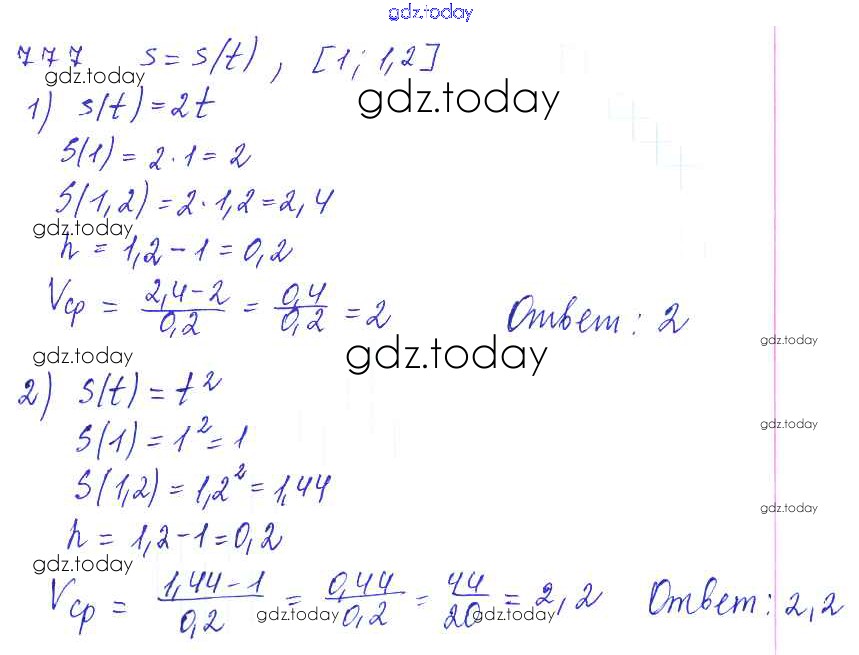 gdz.today
777 s = s(t), [1; 1,2]
gdz.today
gdz.today
1) s(t) = 2t
S(1) = 2 · 1 = 2
S(1,2) = 2 · 1,2 = 2,4
gdz.today
h = 1,2 - 1 = 0,2
Vср = (2,4 - 2)/0,2 = 0,4/0,2 = 2 Ответ: 2
gdz.today
gdz.today
gdz.today
2) S(t) = t²
gdz.today
S(1) = 1² = 1
S(1,2) = 1,2² = 1,44
gdz.today
h = 1,2 - 1 = 0,2
gdz.today
Vср = (1,44 - 1)/0,2 = 0,44/0,2 = 44/20 = 2,2 Ответ: 2,2
gdz.today
gdz.today
gdz.today